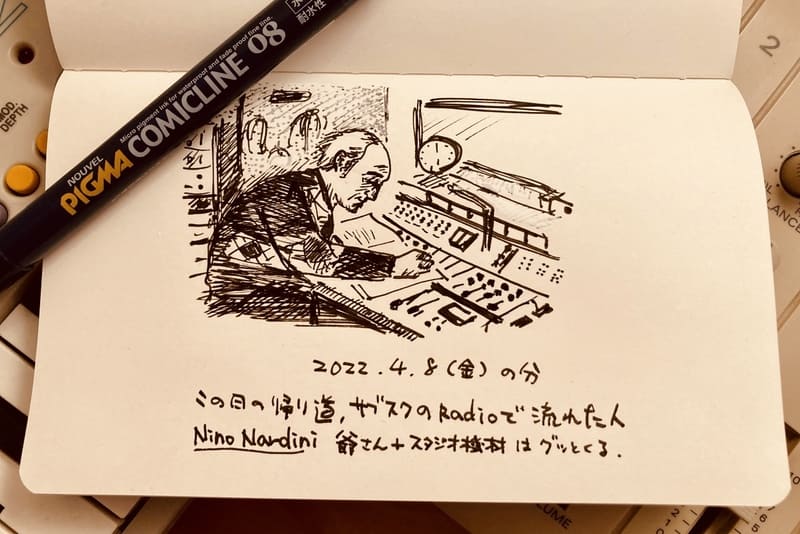 Micro pigment ink for waterproof and fade proof fine line.
NOUVEL
PIGMA
COMICLINE 08
耐水性
MOD
DEPTH
2
2022.4.8(金)の分
この日の帰り道,サブスクのRadioで流れた人
Nino Nardini 爺さん+スタジオ機材はグッとくる.